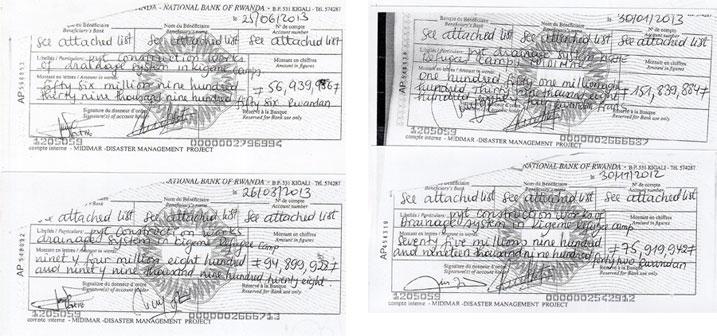 - NATIONAL BANK OF RWANDA - B.P. 531 KIGALI - Tél. 574287
le 25/06/2013
du Bénéficiaire
Beneficiary's Bank
Nom du Bénéficiaire
Beneficiary's Name
N° de compte
Account number
See attached list See attached list See attached list
Libellés / Particulars: pyt construction works
of drainage system in Kigeme Camps
Montant en chiffres
Amount in figures
Montant en lettres / Amount in words
fifty six million nine hundred
thirty nine thousand nine hundred fifty six Rwandan
Signature du donneur d'ordre
Signature(s) of account holder
Réservé à la Banque
Reserved for Bank use only
1205059
0000002796994
compte interne - MIDIMAR -DISASTER MANAGEMENT PROJECT
NATIONAL BANK OF RWANDA - B.P. 531 KIGALI - Tél. 574287
le 26/03/2013
du Bénéficiaire
Beneficiary's Bank
Nom du Bénéficiaire
Beneficiary's Name
N° de compte
Account number
attached list See attached list See attached list
Libellés / Particulars: pyt construction works
drainage system in Kigeme refugee camp
Montant en chiffres
Amount in figures
Montant en lettres / Amount in words
ninety four million eight hundred
and ninety nine thousand nine hundred twenty eight
Signature du donneur d'ordre
Signature(s) of account holder
Réservé à la Banque
Reserved for Bank use only
1205059
0000002666713
compte interne - MIDIMAR -DISASTER MANAGEMENT PROJECT
NATIONAL BANK OF RWANDA - B.P. 531 KIGALI - Tél. 574287
le 30/01/2013
N° de compte
Account number
See attached list See attached list See attached list
pyt drainage
refugee camps
Montant en chiffres
Amount in figures
one hundred fifty one million
hundred thirty nine thousand eight
hundred
Réservé à la Banque
Reserved for Bank use only
1205059
0000002666687
compte interne - MIDIMAR -DISASTER MANAGEMENT PROJECT
NATIONAL BANK OF RWANDA - B.P. 531 KIGALI - Tél. 574287
le 30/11/2012
du Bénéficiaire
Beneficiary's Bank
Nom du Bénéficiaire
Beneficiary's Name
N° de compte
Account number
See attached list See attached list See attached list
Libellés / Particulars: pyt construction works of
Drainage system in Kigeme refugee camp
Montant en chiffres
Amount in figures
Montant en lettres / Amount in words
Seventy five millions nine hundred
and nineteen thousand nine hundred forty two Rwandan
Signature du donneur d'ordre
Signature(s) of account holder
Réservé à la Banque
Reserved for Bank use only
1205059
0000002542912
compte interne - MIDIMAR -DISASTER MANAGEMENT PROJECT